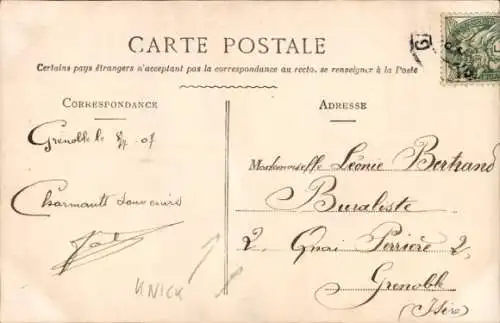 CARTE POSTALE
Certains pays étrangers n'acceptant pas la correspondance au recto, se renseigner à la Poste
CORRESPONDANCE
ADRESSE
Grenoble le 07
Charmants souvenirs
Mademoiselle Léonie Bertrand
Buraliste
2, Quai Perrière 2,
Grenoble
(Isère)
KNICK